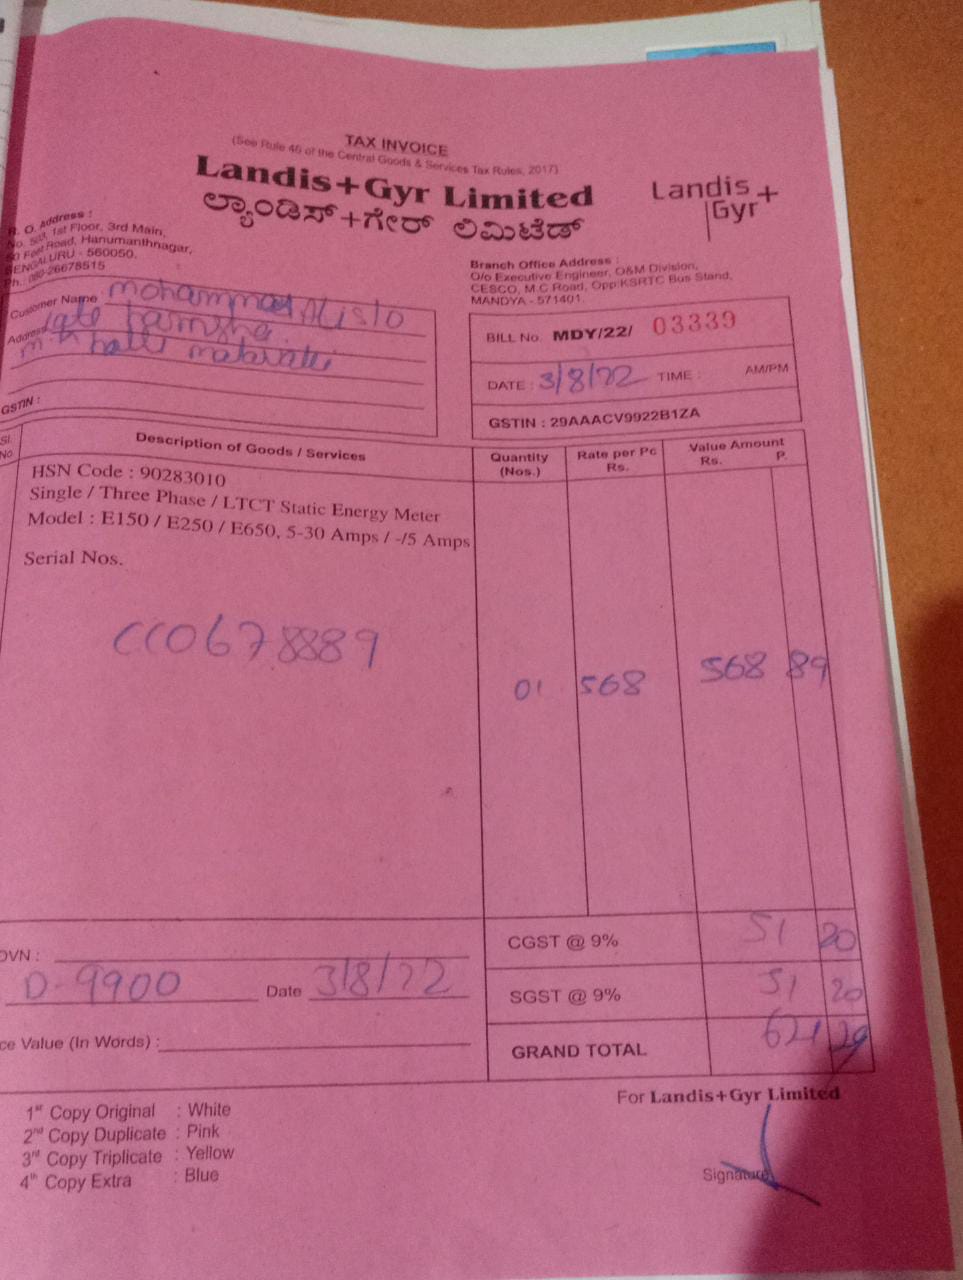 TAX INVOICE
(See Rule 46 of the Central Goods & Services Tax Rules, 2017)
Landis+Gyr Limited
ಲ್ಯಾಂಡಿಸ್+ಗೇರ್ ಲಿಮಿಟೆಡ್
Landis+
Gyr
R. O. Address :
No. 503, 1st Floor, 3rd Main,
50 Feet Road, Hanumanthnagar,
BENGALURU - 560050.
Ph.: 080-26678515
Branch Office Address :
O/o Executive Engineer, O&M Division,
CESCO, M.C.Road, Opp:KSRTC Bus Stand,
MANDYA - 571401.
Customer Name mohammad Ali s/o
Address late
m.h halli
GSTIN :
BILL No. MDY/22/ 03339
DATE : 3/8/22 TIME : AM/PM
GSTIN : 29AAACV9922B1ZA
Sl. No. Description of Goods / Services Quantity (Nos.) Rate per Pc Rs. Value Amount Rs. P.
HSN Code : 90283010
Single / Three Phase / LTCT Static Energy Meter
Model : E150 / E250 / E650, 5-30 Amps / -/5 Amps
Serial Nos.
CC0678889 01 568 568 89
CGST @ 9% 51 20
OVN :
SGST @ 9% 51 20
D-9900 Date 3/8/22
GRAND TOTAL 671 29
ce Value (In Words) :
For Landis+Gyr Limited
1st Copy Original : White
2nd Copy Duplicate : Pink
3rd Copy Triplicate : Yellow
4th Copy Extra : Blue
Signature